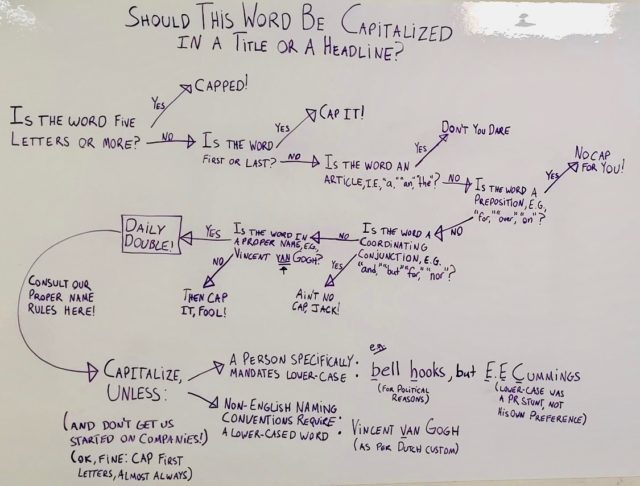 SHOULD THIS WORD BE CAPITALIZED
IN A TITLE OR A HEADLINE?
IS THE WORD FIVE
LETTERS OR MORE?
YES
CAPPED!
NO
IS THE WORD
FIRST OR LAST?
YES
CAP IT!
NO
IS THE WORD AN
ARTICLE, I.E., "a," "an," "the"?
YES
DON'T YOU DARE
NO
IS THE WORD A
PREPOSITION, E.G.,
"for," "over," "on"?
YES
NO CAP
FOR YOU!
NO
IS THE WORD A
COORDINATING
CONJUNCTION, E.G.
"and," "but" "for," "nor"?
YES
AIN'T NO
CAP, JACK!
NO
IS THE WORD IN
A PROPER NAME, E.G.,
VINCENT VAN GOGH?
NO
THEN CAP
IT, FOOL!
YES
DAILY
DOUBLE!
CONSULT OUR
PROPER NAME
RULES HERE!
CAPITALIZE,
UNLESS:
(AND DON'T GET US
STARTED ON COMPANIES!)
(OK, FINE: CAP FIRST
LETTERS, ALMOST ALWAYS)
A PERSON SPECIFICALLY
MANDATES LOWER-CASE :
e.g.
bell hooks, but E.E. CUMMINGS
(FOR POLITICAL
REASONS)
(LOWER-CASE WAS
A PR STUNT, NOT
HIS OWN PREFERENCE)
NON-ENGLISH NAMING
CONVENTIONS REQUIRE :
A LOWER-CASED WORD
VINCENT VAN GOGH
(AS PER DUTCH CUSTOM)